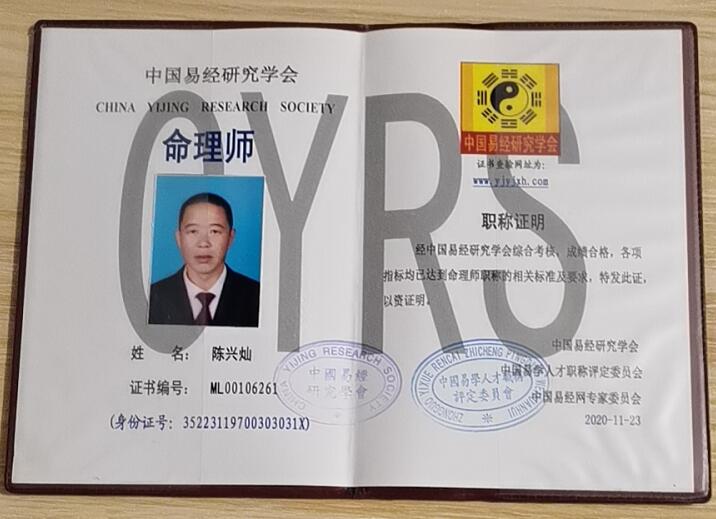 中国易经研究学会
CHINA YIJING RESEARCH SOCIETY
命理师
姓 名: 陈兴灿
证书编号: ML00106261
(身份证号: 35223119700303031X)
CHINA YIJING RESEARCH SOCIETY
中國易經
研究學會
CYRS
中国易经研究学会
证书查验网址为:
www.yjyjxh.com
职称证明
经中国易经研究学会综合考核,成绩合格,各项
指标均已达到命理师职称的相关标准及要求,特发此证,
以资证明。
中国易经研究学会
中国易学人才职称评定委员会
中国易经网专家委员会
2020-11-23
ZHONGGUO YIXUE RENCAI ZHICHENG
中國易學人才職稱
評定委員會